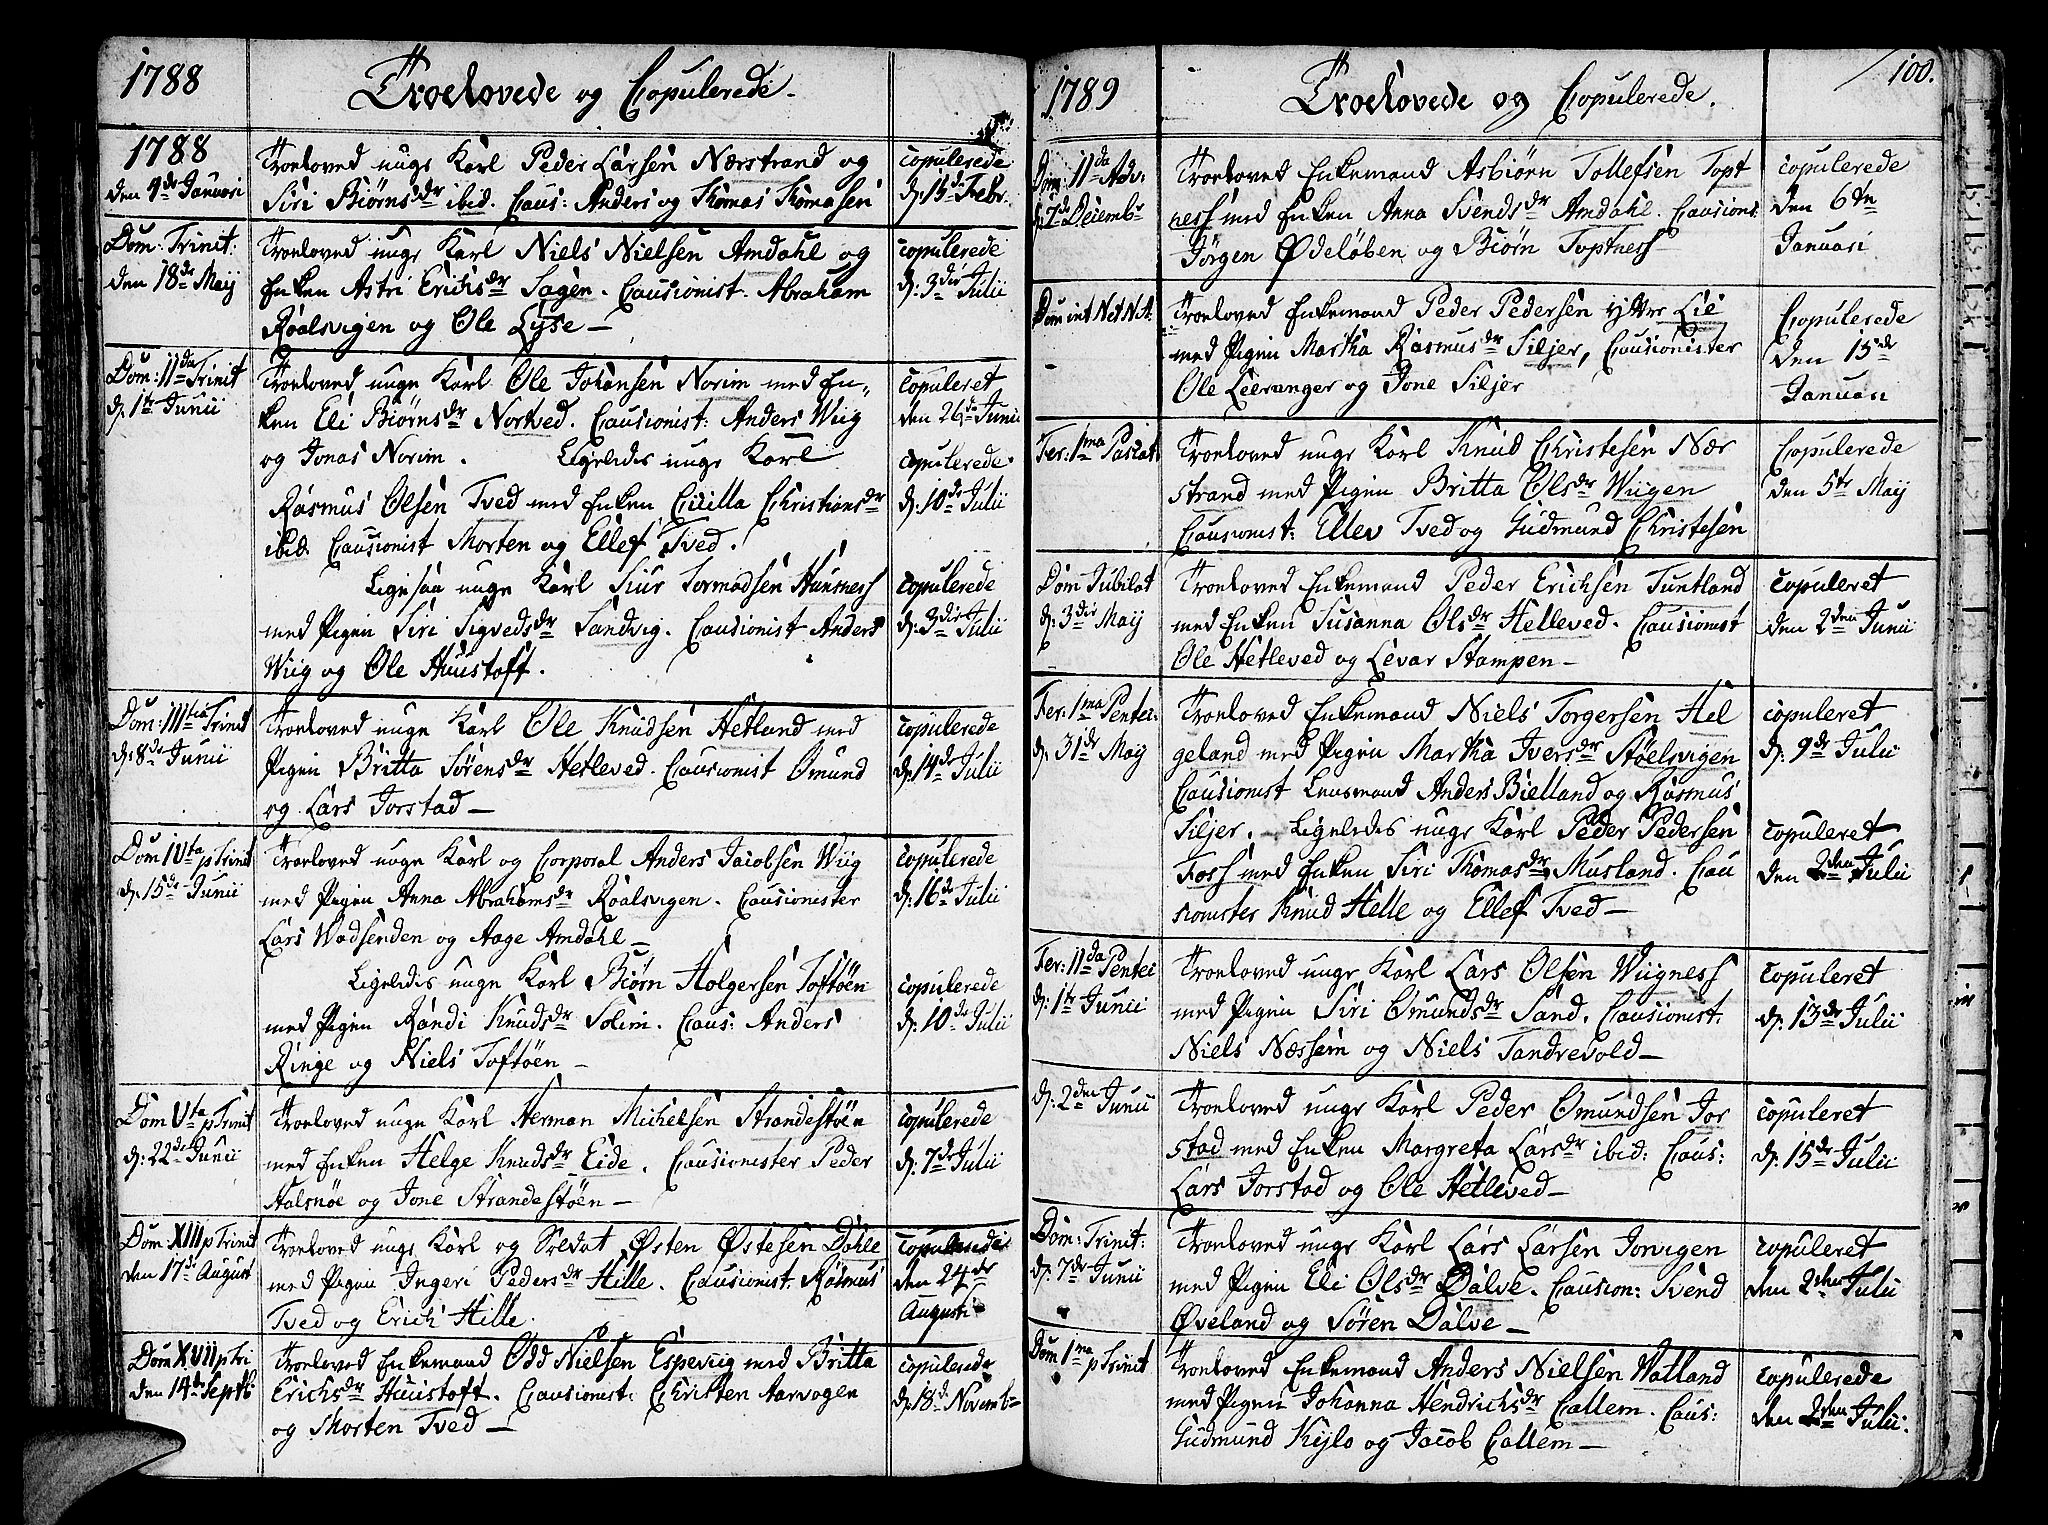 1788
Troelovede og Copulerede.
1788
den 4de Januari
Troeloved unge Karl Peder Larsen Nærstrand og
Siri Biørnsdr ibid. Caus: Anders og Thomas Thomasen
copulerede
d: 15de Febr.
Dom: Trinit:
den 18de Maij
Troeloved unge Karl Niels Nielsen Amdahl og
Enken Astri Erichsdr Sagen. Causionist. Abraham
Roalsvigen og Ole Lyse —
copulerede
d: 3die Julii
Dom: 11da Trinit
d: 1te Junii
Troeloved unge Karl Ole Johansen Norim med En,
ken Eli Biørnsdr Nortved. Causionist: Anders Wiig
og Jonas Norim. Ligeledes unge Karl
Rasmus Olsen Tved med Enken Cicilla Christiansdr
ibid. Causionist Morten og Ellef Tved.
Ligesaa unge Karl Siur Tormodsen Hunsness
med Pigen Siri Sigvedsdr Sandvig. Causionist Anders
Wiig og Ole Huustoft.
copuleret
den 26de Junii
copulerede
d: 10de Julii
copulerede
d: 3die Julii
Dom: IIItia Trinit
d: 8de Junii
Troeloved unge Karl Ole Knudsen Hetland med
Pigen Britta Sørensdr Hetleved. Causionist Omund
og Lars Jorstad —
copulerede
d: 14de Julii
Dom IVta p Trinit
d: 15de Junii
Troeloved unge Karl og Corporal Anders Jacobsen Wiig
med Pigen Anna Abrahamsdr Roalsvigen. Causionister
Lars Wadsenden og Aage Amdahl —
Ligeledes unge Karl Biørn Holgersen Toftøen
med Pigen Randi Knudsdr Solim. Caus: Anders
Ringe og Niels Toftøen —
copulerede
d: 16de Julii
copulerede
d: 10de Julii
Dom Vta p Trinit
d: 22de Junii
Troeloved unge Karl Herman Michelsen Strandestøen
med Enken Helge Knudsdr Eide. Causionister Peder
Halsnøe og Jone Strandestøen —
copulerede
d: 7de Julii
Dom XIII p Trinit
den 17de August
Troeloved unge Karl og Soldat Østen Østesen Dahle
med Pigen Ingeri Pedersdr Hille. Causionist: Rasmus
Tved og Erich Hille.
copulerede
den 24de
Augusti
Dom XVII p Tri
den 14de Septb
Troeloved Enkemand Odd Nielsen Espevig med Britta
Erichsdr Huustoft. Causionist: Christen Aarvogen
og Morten Tved —
copulerede
d: 18de Novemb
1789
Troelovede og Copulerede.
100.
Dom: 11da Adv:
d: 7de Decembr
Troeloved Enkemand Asbiørn Tollefsen Topt
ness med Enken Anna Svendsdr Amdahl. Causions
Jørgen Ødeløben og Biørn Toptness
copulerede
den 6te
Januari
Dom int Net N A:
Troeloved Enkemand Peder Pedersen yttre Lie
med Pigen Martha Rasmusdr Siljer, Causionister
Ole Lieranger og Jone Siljer
Copulerede
den 15de
Januari
Fer: 1ma Pascat
Troeloved unge Karl Knud Christesen Nær
strand med Pigen Britta Olsdr Wiigen
Causionist: Ellev Tved og Gudmund Christesen
Copulerede
den 5te Maij
Dom Jubilat
d: 3die Maij
Troeloved Enkemand Peder Erichsen Tuntland
med Enken Susanna Olsdr Hetleved. Causionist
Ole Hetleved og Levar Stampen —
copuleret
den 2den Junii
Fer: 1ma Pentec:
d: 31de Maij
Troeloved Enkemand Niels Torgersen Hel
geland med Pigen Martha Iversdr Støelsvigen
Causionist Lensmand Anders Bielland og Rasmus
Siljer. Ligeledes unge Karl Peder Pedersen
Foss med Enken Siri Thomasdr Musland. Cau
sionister Knud Helle og Ellef Tved —
copuleret
d: 9de Julii
copuleret
den 2den Julii
Fer: 11da Pentec
d: 1te Junii
Troeloved unge Karl Lars Olsen Wiigness
med Pigen Siri Omundsdr Sand. Causionist.
Niels Næssem og Niels Tandrevold —
copuleret
d: 13de Julii
d: 2den Junii
Troeloved unge Karl Peder Omundsen Jor
stad med Enken Margreta Larsdr ibid: Caus:
Lars Jorstad og Ole Hetleved —
copuleret
d: 15de Julii
Dom: Trinit:
d: 7de Junii
Troeloved unge Karl Lars Larsen Jonvigen
med Pigen Eli Olsdr Dalve. Causion: Svend
Øveland og Søren Dalve —
copuleret
den 2den Julii
Dom 1ma p Trinit
Troeloved Enkemand Anders Nielsen Watland
med Pigen Johanna Hendrichsdr Callem. Caus:
Gudmund Kijlo og Jacob Callem —
copulerede
den 2den Julii: